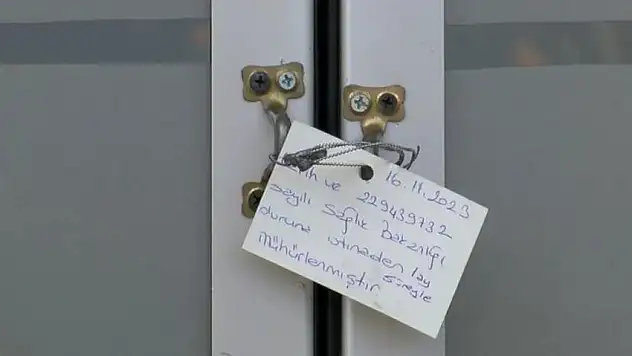 16.11.2023
ih ve 229439732
sayılı Sağlık Bakanlığı
duruna istinaden 1ay
süreyle
Mühürlenmiştir